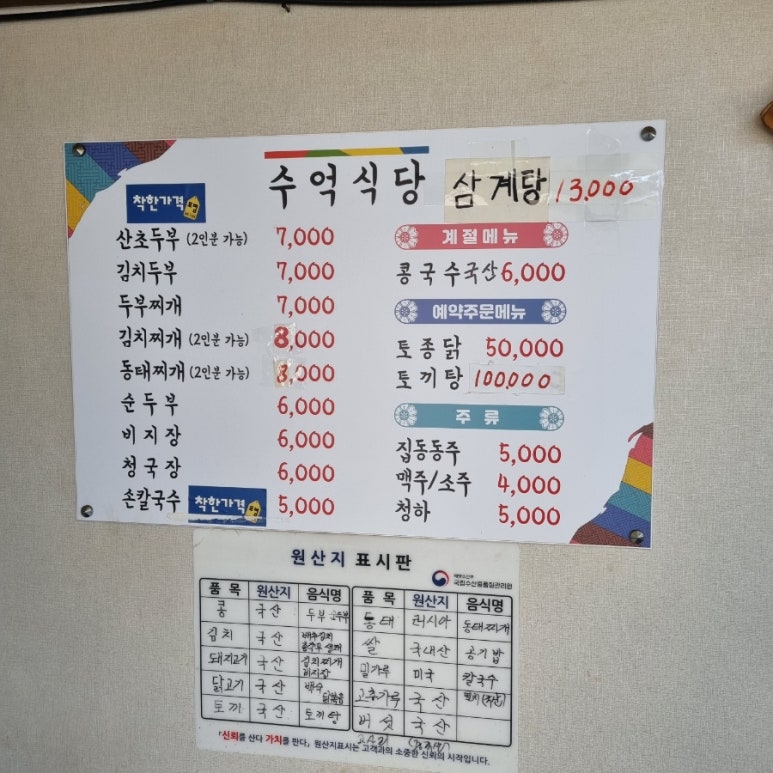 수억식당 삼계탕 13,000
착한가격
산초두부 (2인분 가능) 7,000
김치두부 7,000
두부찌개 7,000
김치찌개 (2인분 가능) 8,000
동태찌개 (2인분 가능) 8,000
순두부 6,000
비지장 6,000
청국장 6,000
손칼국수 착한가격 5,000
계절메뉴
콩국수국산 6,000
예약주문메뉴
토종닭 50,000
토끼탕 100,000
주류
집동동주 5,000
맥주/소주 4,000
청하 5,000
원산지 표시판
국립수산물품질관리원
품목 원산지 음식명 품목 원산지 음식명
콩 국산 두부 동태 러시아 동태찌개
김치 국산 배추김치 쌀 국내산 공기밥
돼지고기 국산 김치찌개 비지장 밀가루 미국 칼국수
닭고기 국산 백숙 고춧가루 국산
토끼 국산 토끼탕 버섯 국산
「신뢰를 산다 가치를 판다」 원산지표시는 고객과의 소중한 신뢰의 시작입니다.